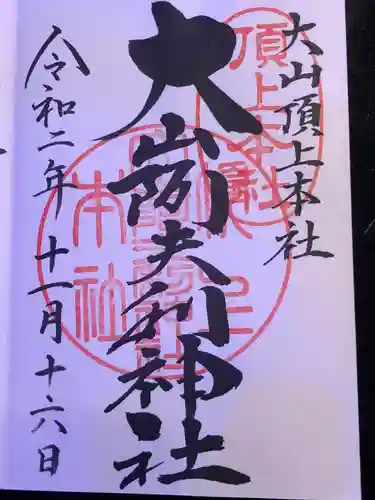 大山頂上本社
大山阿夫利神社
令和二年十一月十六日
頂上本社
本社